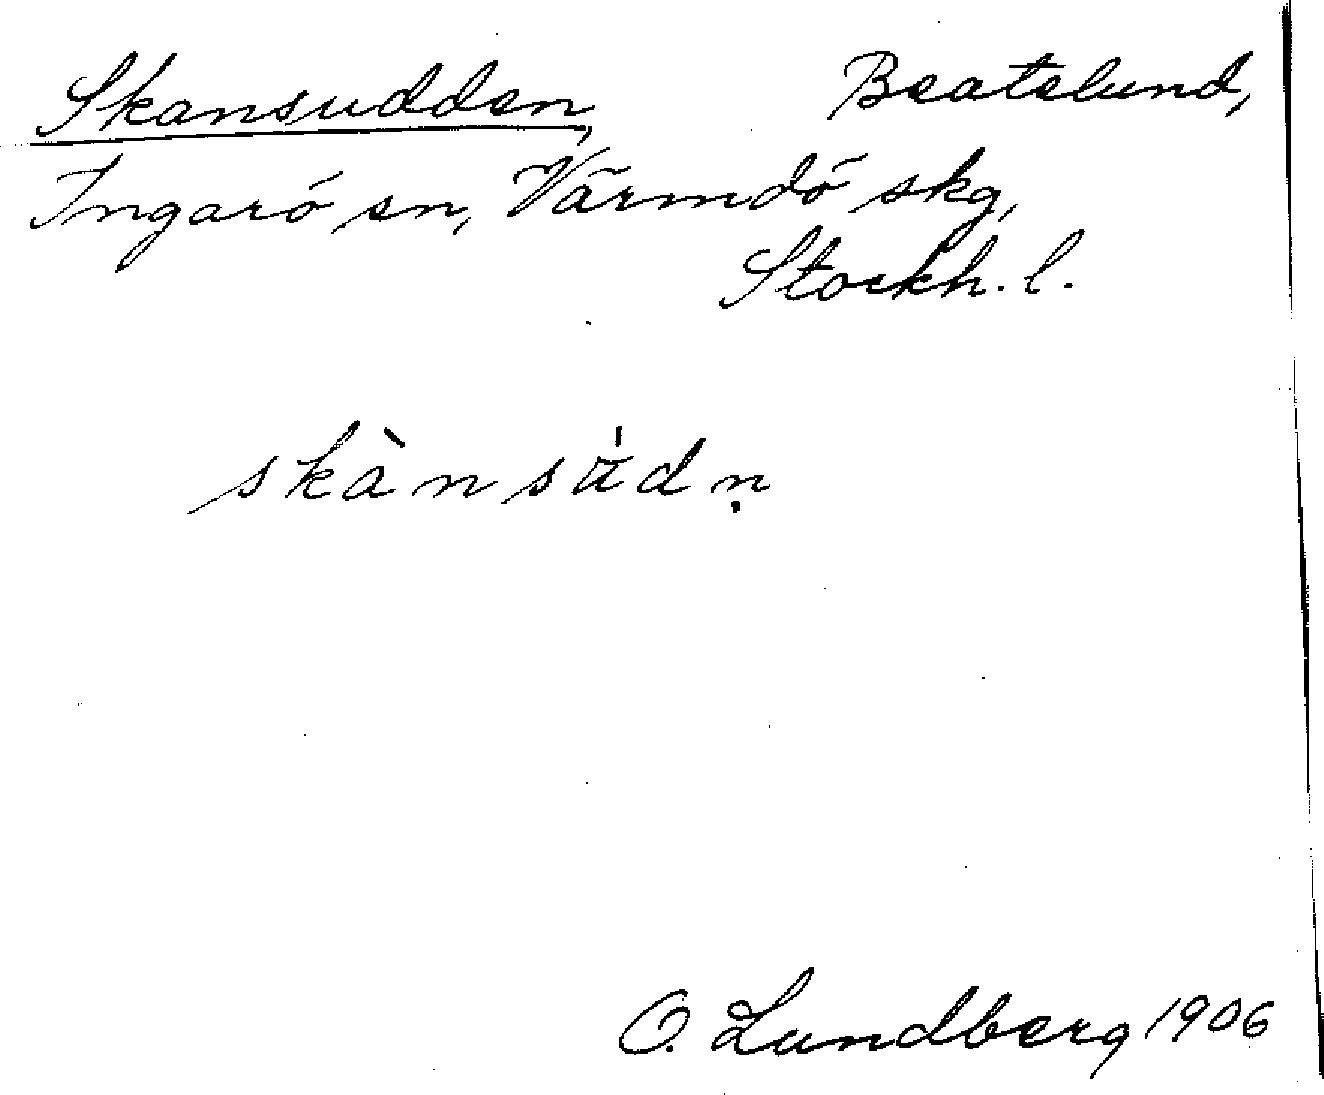 Skansudden, Beatelund,
Ingarö sn, Värmdö skg,
Stockh. l.
skànsu̍dṇ
O. Lundberg 1906